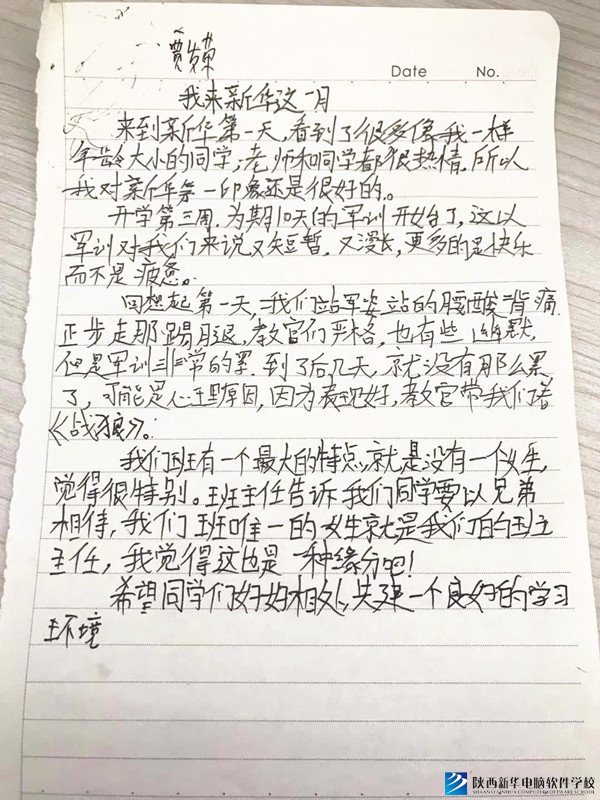 Date No.
我来新华这一月
来到新华第一天,看到了很多像我一样
年龄大小的同学,老师和同学都很热情.所以
我对新华第一印象还是很好的。
开学第三周.为期10天的军训开始了,这以
军训对我们来说又短暂.又漫长,更多的是快乐
而不是疲惫。
回想起第一天,我们站军姿站的腰酸背痛
正步走那踢腿,教官们严格,也有些幽默,
但是军训非常的累.到了后几天,就没有那么累
了,可能是心理原因,因为表现好,教官带我们看
《战狼》。
我们班有一个最大的特点,就是没有一女生,
觉得很特别。班主任告诉我们同学要以兄弟
相待,我们班唯一的女生就是我们的班主
主任,我觉得这也是一种缘分吧!
希望同学们好好相处,共建一个良好的学习
环境
陕西新华电脑软件学校
SHAANXI XINHUA COMPUTER SOFTWARE SCHOOL